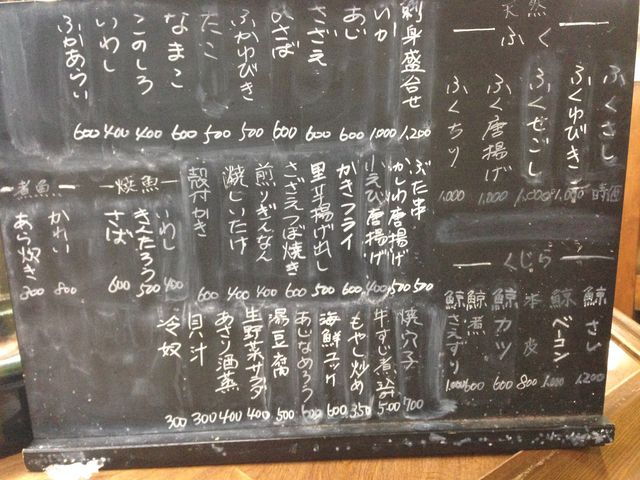 天然
ふく
ふくさし 時価
ふくゆびき
ふくぜごし
ふく唐揚げ 1,000
ふくちり 1,000
くじら
鯨さし 1,200
鯨ベーコン
皮 800
鯨カツ 600
鯨煮 600
鯨さえずり 1,000
刺身盛合せ 1,200
いか 1,000
あじ 600
さざえ 600
〆さば 600
ふかゆびき 500
たこ 500
なまこ 600
このしろ 400
いわし 400
ふかあらい 600
ぶた串 500
かしわ唐揚げ 500
小えび唐揚げ 400
かきフライ 600
里芋揚げ出し 500
さざえつぼ焼き 600
煎りぎんなん 400
焼しいたけ 400
殻付かき 600
焼魚
いわし 400
きんたろう 500
さば 600
煮魚
かれい 800
あら炊き 300
焼穴子 700
牛すじ煮込 500
もやし炒め 350
海鮮ユッケ 600
あじなめろう 600
湯豆腐 500
生野菜サラダ 400
あさり酒蒸 400
貝汁 300
冷奴 300